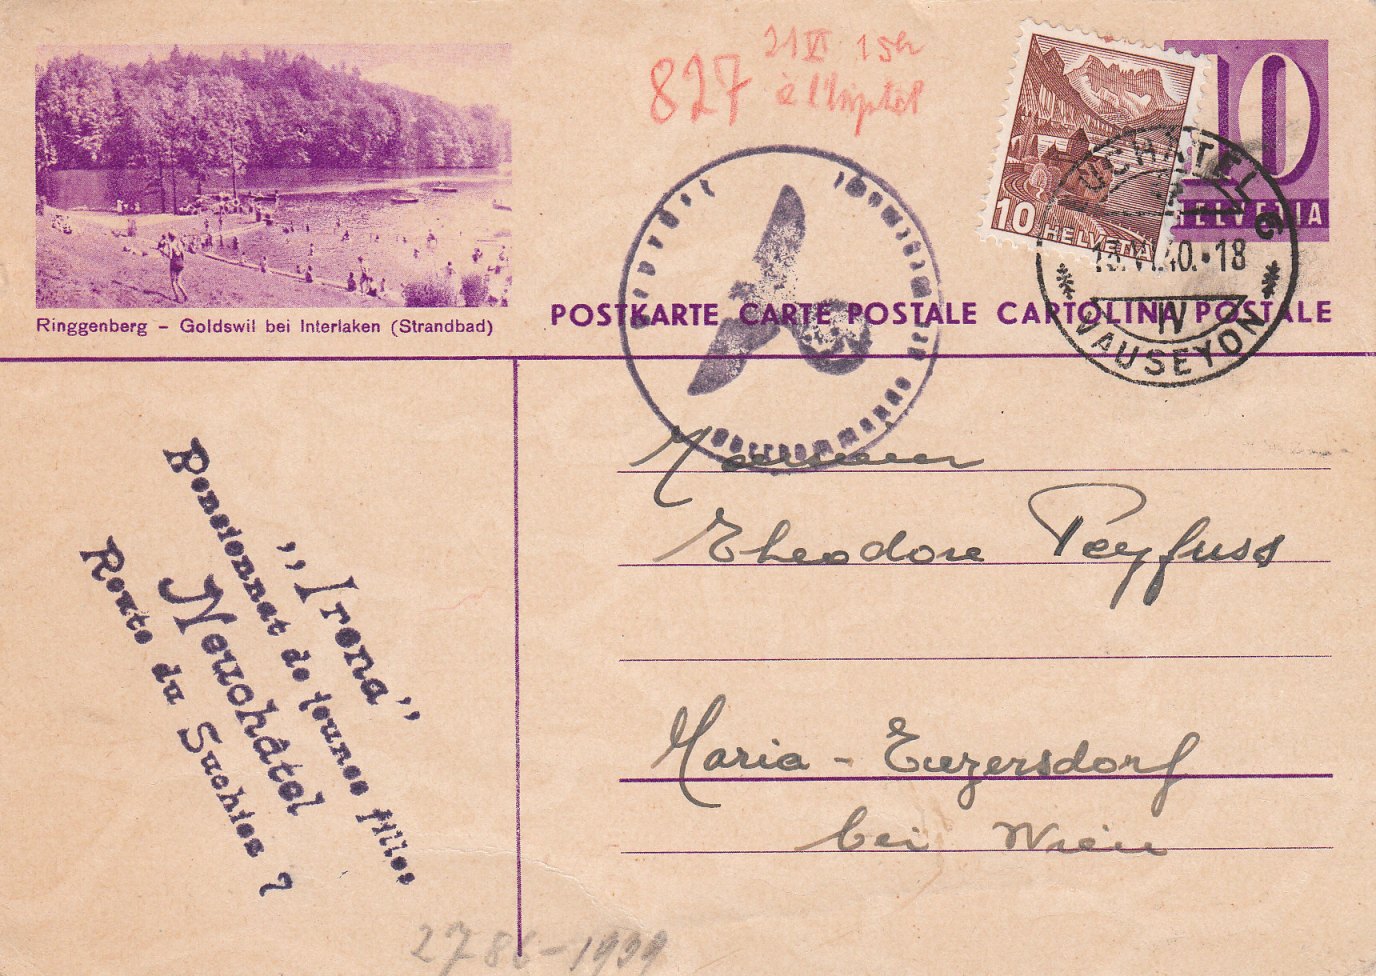 827
21 VI 15h
à l'hôpital
10
HELVETIA
10
HELVETIA
NEUCHÂTEL 6
13.VI.40.•18
IV
VAUSEYON
Ringgenberg – Goldswil bei Interlaken (Strandbad)
POSTKARTE CARTE POSTALE CARTOLINA POSTALE
Oberkommando
"Irena"
Pensionnat de jeunes filles
Neuchâtel
Route du Suchiez 7
Theodore Peyfuss
Maria - Enzersdorf
bei Wien
1939